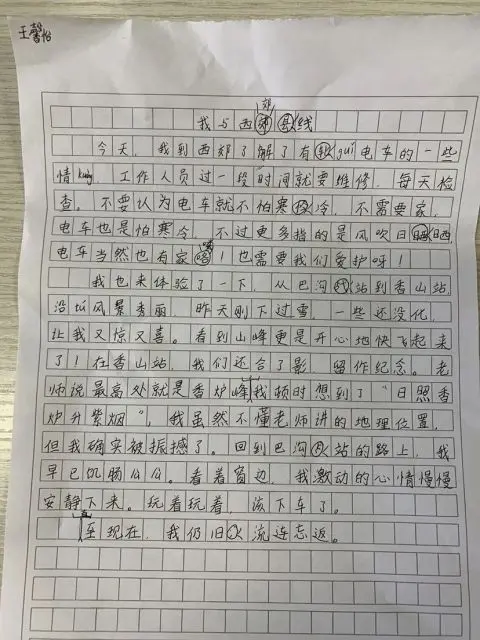 王馨怡
郊
我与西县线
今天，我到西郊了解了有轨guǐ电车的一些
情kuàng，工作人员过一段时间就要维修，每天检
查，不要认为电车就不怕寒冷，不需要家，
电车也是怕寒冷，不过更多指的是风吹日晒，
电车当然也有家！也需要我们爱护呀！
我也来体验了一下，从巴沟站到香山站，
沿tú风景秀丽，昨天刚下过雪，一些还没化，
让我又惊又喜。看到山峰更是开心地快飞起来
了！在香山站，我们还合了影，留作纪念。老
师说最高处就是香炉峰，我顿时想到了“日照香
炉升紫烟”，我虽然不懂老师讲的地理位置，
但我确实被振撼了。回到巴沟站的路上，我
早已饥肠瓜瓜。看着窗边，我激动的心情慢慢
安静下来。玩着玩着，该下车了。
直至现在，我仍旧流连忘返。